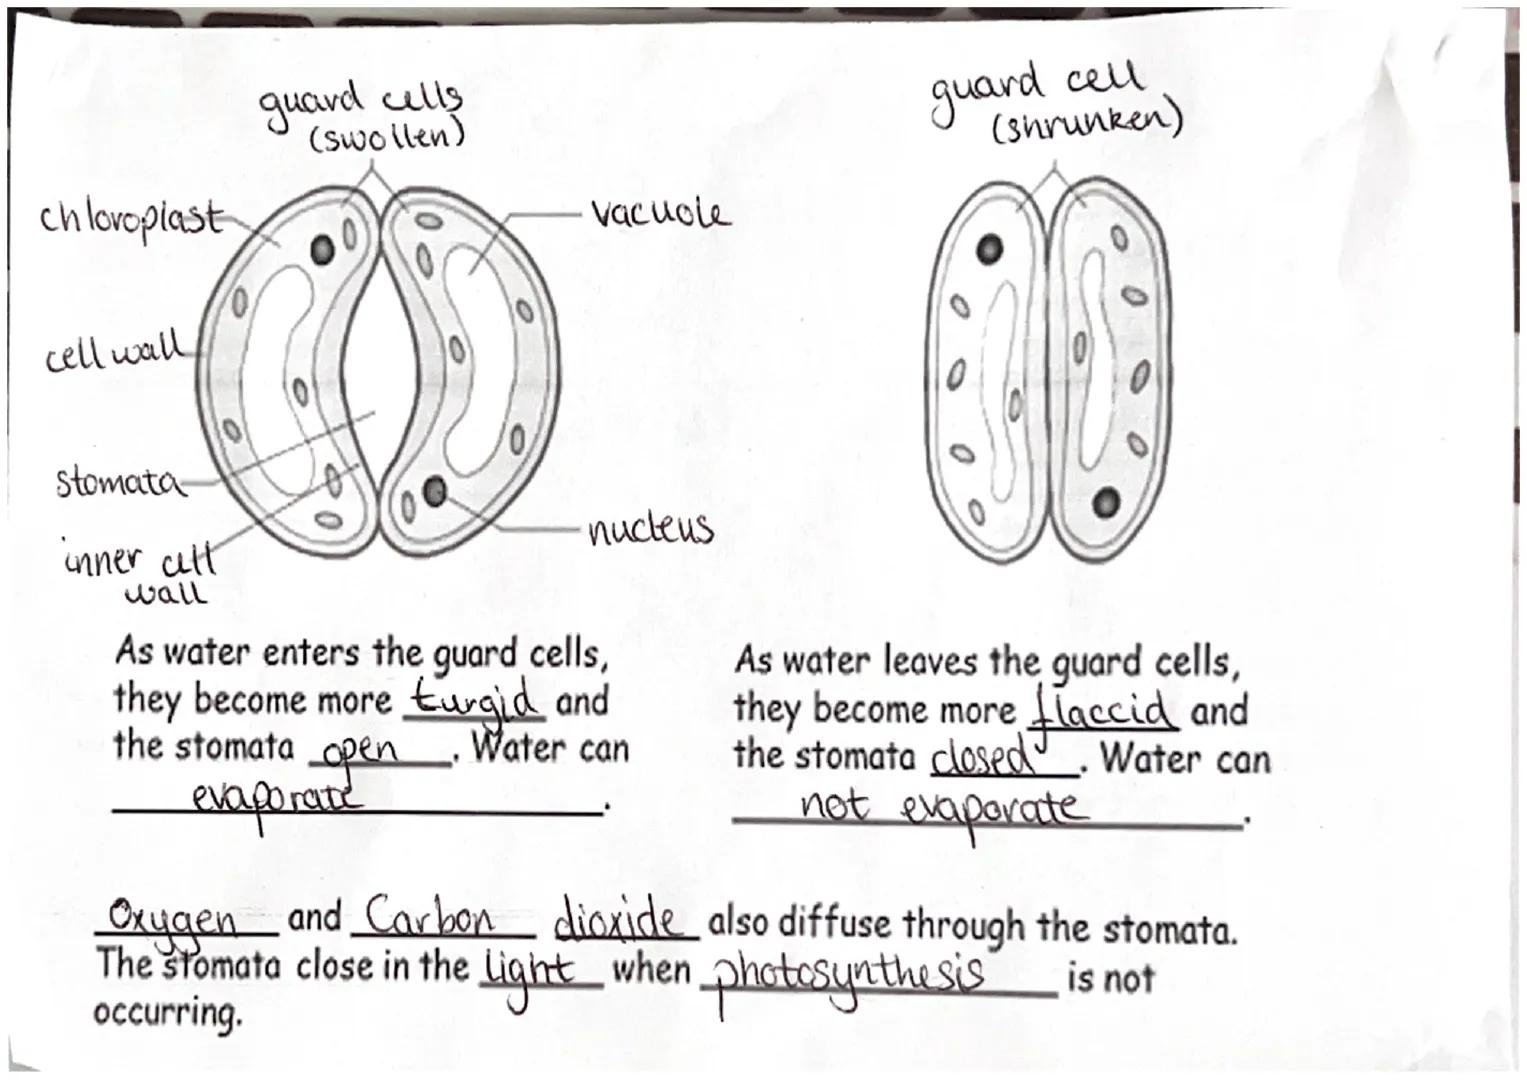 guard cells
(swollen)
guard cell
(shrunken)
chloroplast
vacuole
cell wall
stomata
nucleus
inner cell
wall
As water enters the guard cells,
they become more turgid and
the stomata open. Water can
evaporate.
As water leaves the guard cells,
they become more flaccid and
the stomata closed. Water can
not evaporate.
Oxygen and Carbon dioxide also diffuse through the stomata.
The stomata close in the light when photosynthesis is not
occurring.